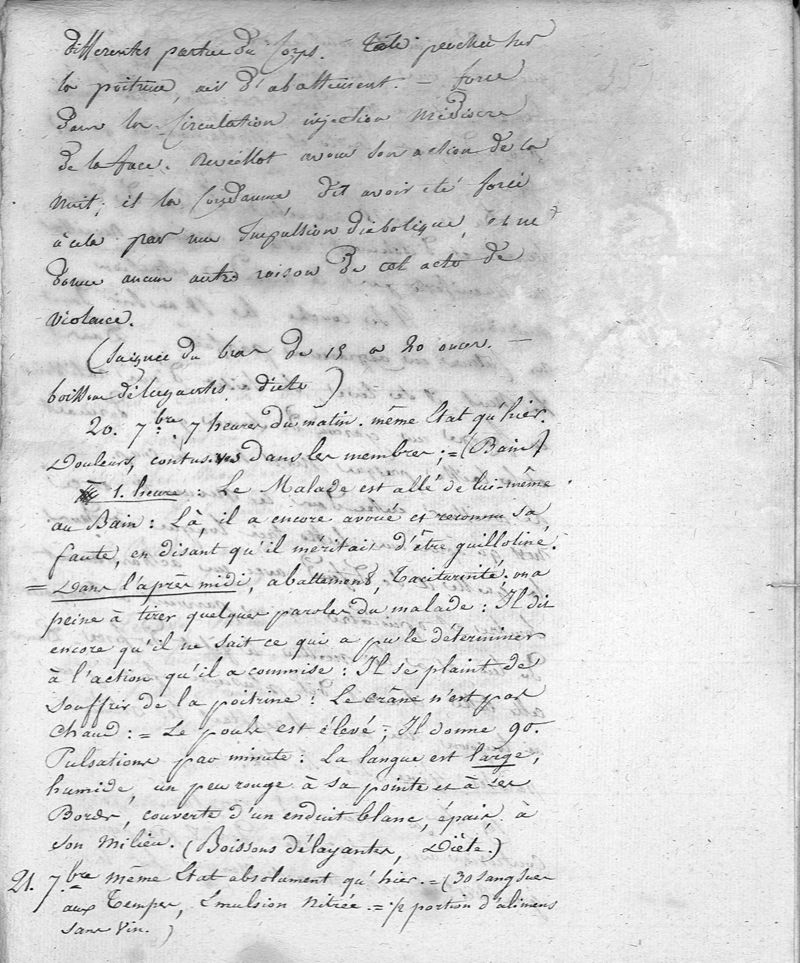 differentes parties du Corps. Tête penchée sur
la poitrine, air d'abattement. – force
dans la Circulation injection Médiocre
de la face. avoue son action de la
nuit; il la Condamne, dit avoir été forcé
à cela par une Impulsion diabolique, et ne
donne aucun autre raison de cet acte de
violence.
(Saignée du bras de 15 a 20 onces. –
boisson délayantes diète)
20. 7bre. 7 heures du matin. même Etat qu'hier.
Douleurs, contusives dans les membres; = (Bain)
1. heure : Le Malade est allé de lui-même
au Bain : Là, il a encore avoué et reconnu sa
faute, en disant qu'il méritait d'être guillotiné.
= Dans l'après midi, abattement, taciturnité. on a
peine à tirer quelques paroles du malade : Il dit
encore qu'il ne sait ce qui a pu le déterminer
à l'action qu'il a commise : Il se plaint de
souffrir de la poitrine : Le crâne n'est pas
chaud : = Le pouls est élevé; Il donne 90.
Pulsations par minute : La langue est large,
humide, un peu rouge à sa pointe et à ses
Bords, couverte d'un enduit blanc, épais, à
son milieu. (Boissons délayantes, Diète.)
21. 7bre même Etat absolument qu'hier. = (30 sangsues
aux Tempes, Emulsion Nitrée = 1/2 portion d'alimens
sans vin.)